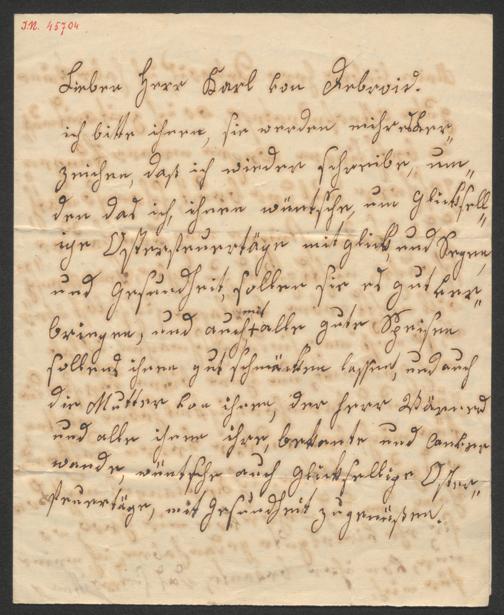 J.N. 45704
Lieber Herr Karl von
ich bitte ihnen, sie werden mihr ver„
zeihen, daß ich wieder schreibe, um„
den das ich, ihnen wüntsche, um Glücksell„
ige Ostersteuertäge mit glick, und Segen,
und Gesundheit, sollen sie es gut ver„
bringen, und auch mit alle gute Speisen
sollens ihnen gut schmäcken lassen, und auch
die Mutter von ihnen, der Herr
und alle ihnen ihre, bekante und
wande, wüntsche auch Glücksellige Oster„
steuertäge, mit Gesundheit zugenüßen.